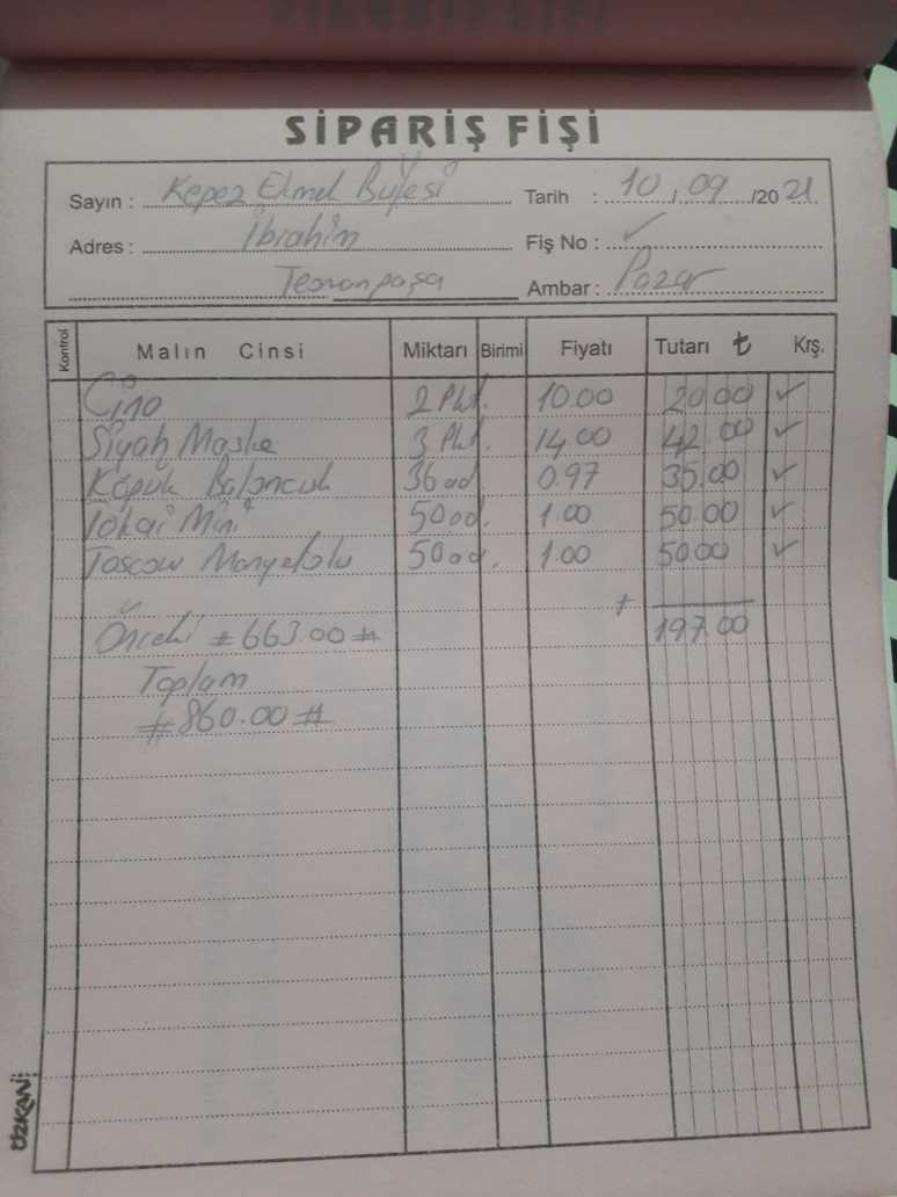 SİPARİŞ FİŞİ
Sayın : Kepez Ekmek Büfesi Tarih : 10.09./2021
Adres : İbrahim Fiş No :
Ambar : Pazar
Kontrol Malın Cinsi Miktarı Birimi Fiyatı Tutarı ₺ Krş.
Cino 2 Pkt. 10.00 20 00
Siyah Maske 3 Pkt. 14.00 42.00
Köpük Baloncuk 36 ad. 0.97 35.00
Tokai Mini 50 ad. 1.00 50.00
Manyetolu 50 ad. 1.00 50 00
+ 197.00
Önceki #663.00#
Toplam
#860.00#
ÖZKAN